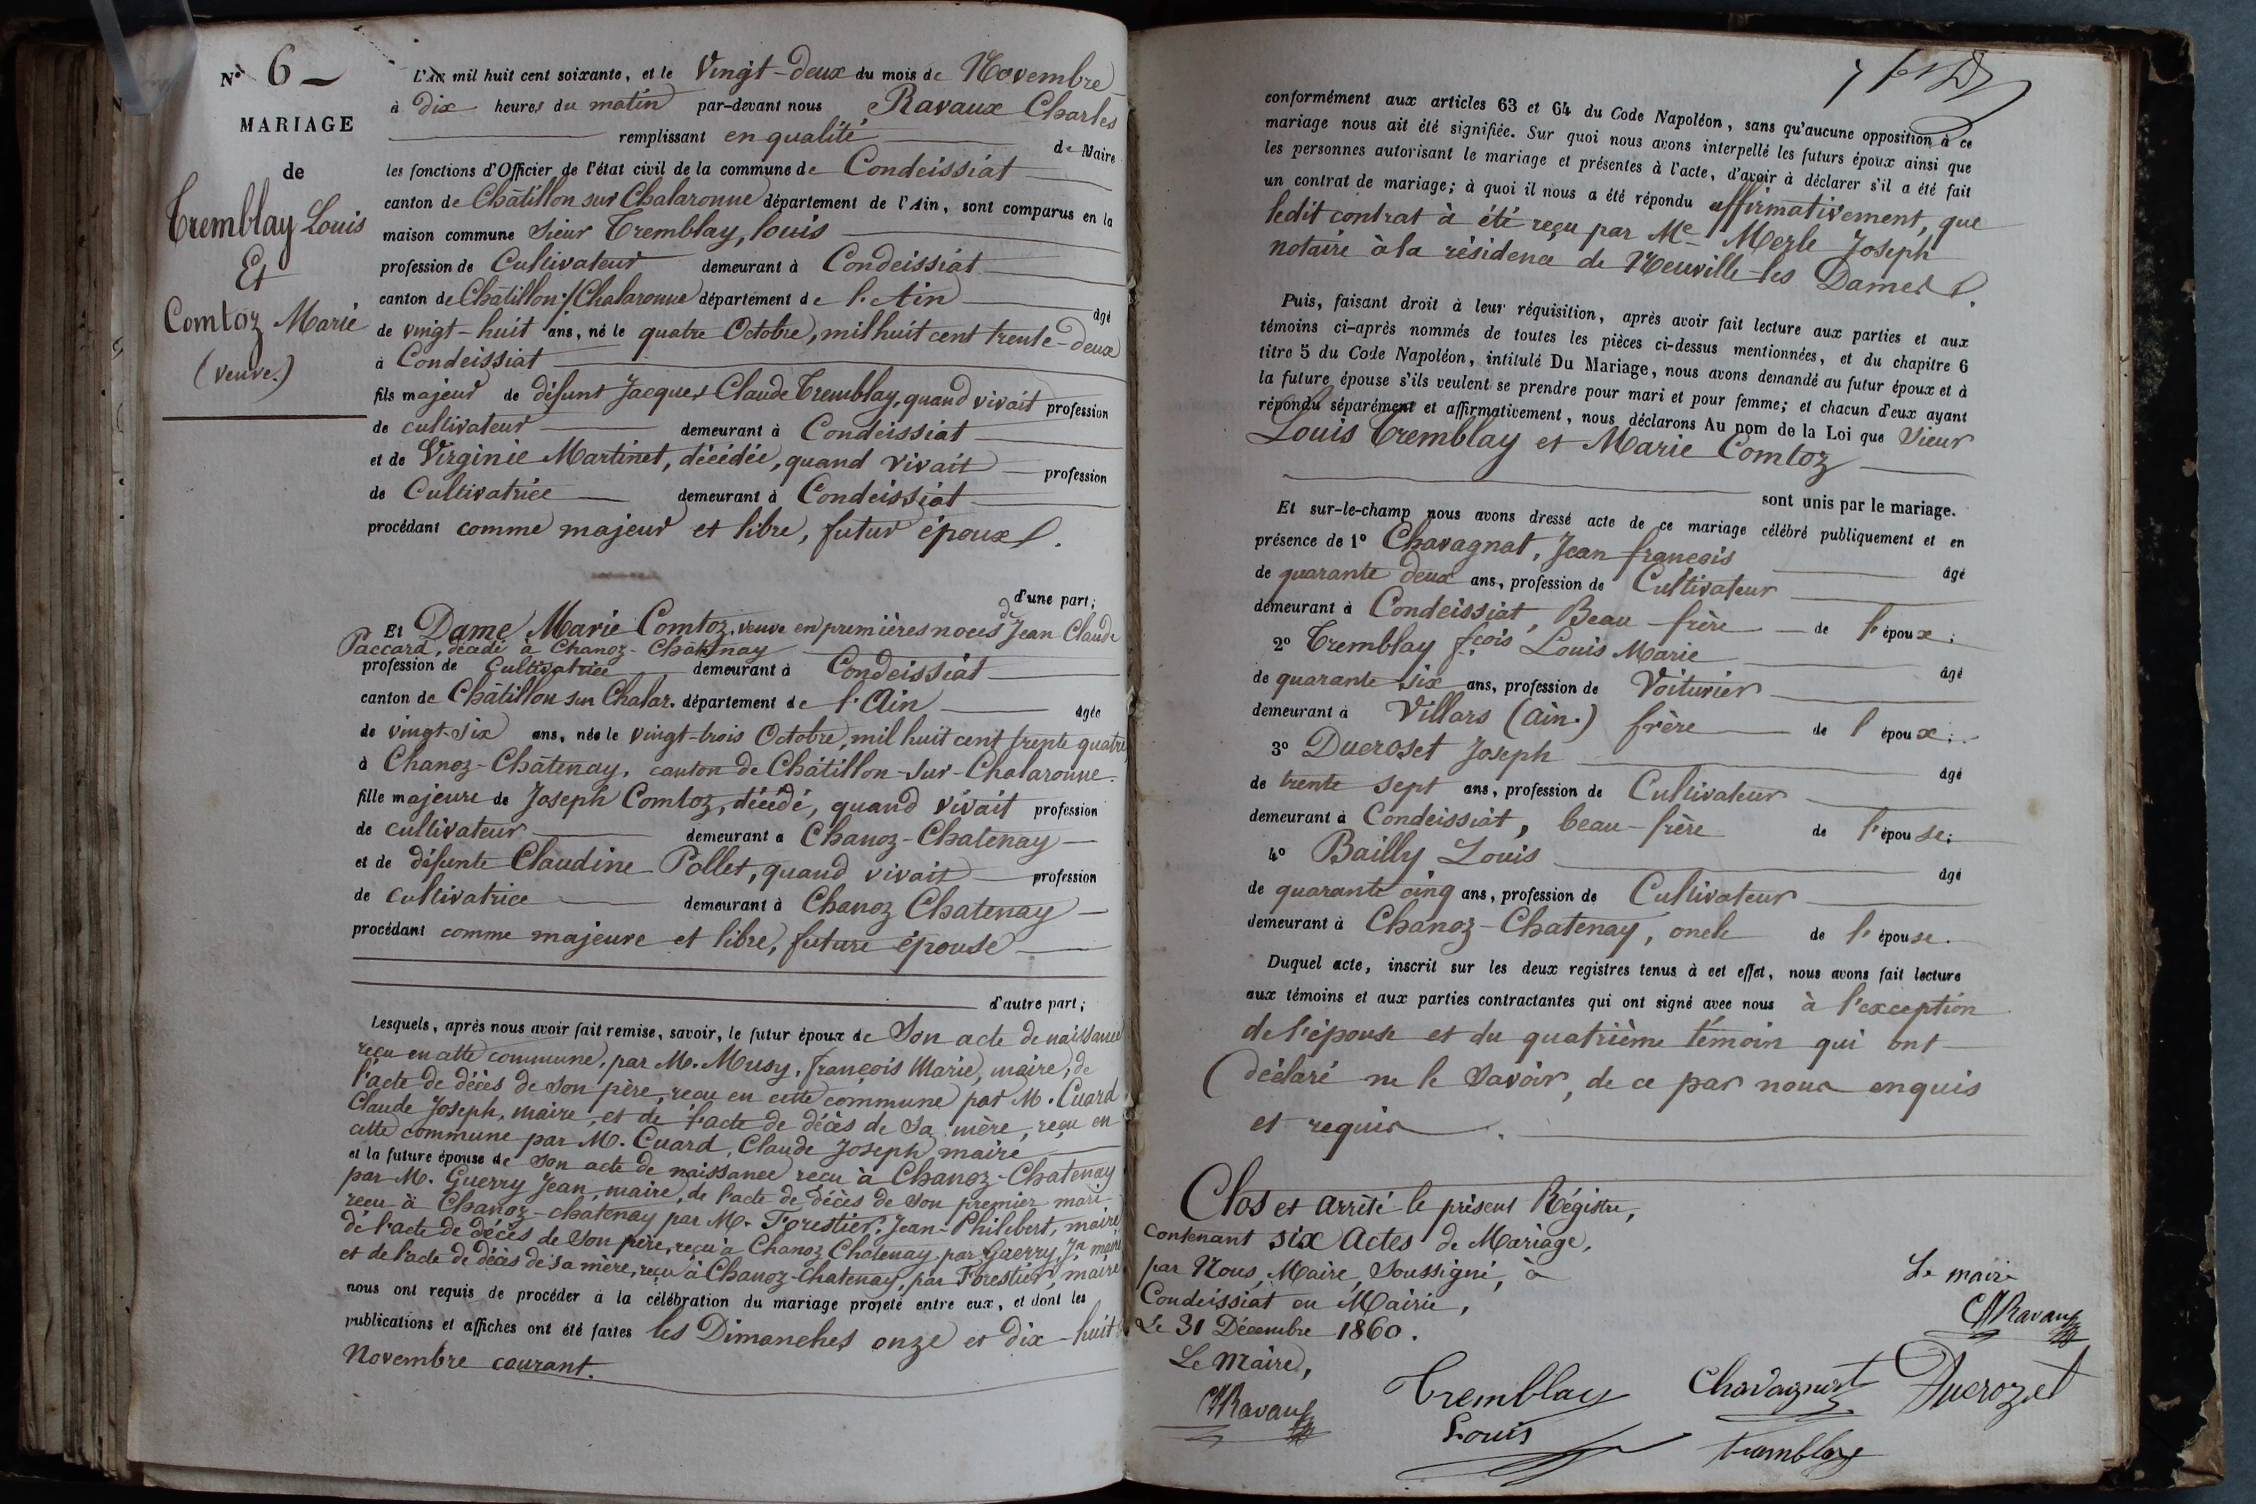 N° 6
MARIAGE
de
Tremblay Louis
Et
Comtoz Marie
(veuve.)
L'An mil huit cent soixante, et le Vingt-deux du mois de Novembre
à dix heures du matin par-devant nous Ravaux Charles
remplissant en qualité de Maire
les fonctions d'Officier de l'état civil de la commune de Condeissiat
canton de Châtillon sur Chalaronne département de l'Ain, sont comparus en la
maison commune Sieur Tremblay, louis
profession de Cultivateur demeurant à Condeissiat
canton de Châtillon s/Chalaronne département de l'Ain âgé
de vingt-huit ans, né le quatre Octobre, mil huit cent trente-deux
à Condeissiat
fils majeur de défunt Jacques Claude Tremblay, quand vivait profession
de cultivateur demeurant à Condeissiat
et de Virginie Martinet, décédée, quand vivait profession
de Cultivatrice demeurant à Condeissiat
procédant comme majeur et libre, futur époux.
d'une part;
Et Dame Marie Comtoz, veuve en premières noces de Jean Claude
Paccard, décédé à Chanoz-Châtenay
profession de Cultivatrice demeurant à Condeissiat
canton de Châtillon sur Chalar. département de l'Ain âgée
de vingt-six ans, née le vingt-trois Octobre, mil huit cent trente quatre
à Chanoz-Châtenay, canton de Châtillon-sur-Chalaronne.
fille majeure de Joseph Comtoz, décédé, quand vivait profession
de cultivateur demeurant à Chanoz-Chatenay
et de défunte Claudine Pollet, quand vivait profession
de cultivatrice demeurant à Chanoz Chatenay
procédant comme majeure et libre, future épouse
d'autre part;
Lesquels, après nous avoir fait remise, savoir, le futur époux de Son acte de naissance
reçu en cette commune, par M. Musy, françois Marie, maire; de
l'acte de décès de son père, reçu en cette commune par M. Cuard
Claude Joseph, maire, et de l'acte de décès de sa mère, reçu en
cette commune par M. Cuard, Claude Joseph maire
et la future épouse de son acte de naissance reçu à Chanoz-Chatenay
par M. Guerry Jean, maire, de l'acte de décès de son premier mari
reçu à Chanoz-chatenay par M. Forestier, Jean-Philibert, maire
de l'acte de décès de son père, reçu à Chanoz Chatenay par Guerry, Jn maire
et de l'acte de décès de sa mère, reçu à Chanoz-Chatenay, par Forestier, maire
nous ont requis de procéder à la célébration du mariage projeté entre eux, et dont les
publications et affiches ont été faites les Dimanches onze et dix-huit
Novembre courant.
conformément aux articles 63 et 64 du Code Napoléon, sans qu'aucune opposition à ce
mariage nous ait été signifiée. Sur quoi nous avons interpellé les futurs époux ainsi que
les personnes autorisant le mariage et présentes à l'acte, d'avoir à déclarer s'il a été fait
un contrat de mariage; à quoi il nous a été répondu affirmativement, que
ledit contrat à été reçu par Me Merle Joseph
notaire à la résidence de Neuville-les Dames.
Puis, faisant droit à leur réquisition, après avoir fait lecture aux parties et aux
témoins ci-après nommés de toutes les pièces ci-dessus mentionnées, et du chapitre 6
titre 5 du Code Napoléon, intitulé Du Mariage, nous avons demandé au futur époux et à
la future épouse s'ils veulent se prendre pour mari et pour femme; et chacun d'eux ayant
répondu séparément et affirmativement, nous déclarons Au nom de la Loi que Sieur
Louis Tremblay et Marie Comtoz
sont unis par le mariage.
Et sur-le-champ nous avons dressé acte de ce mariage célébré publiquement et en
présence de 1° Chavagnat, Jean françois âgé
de quarante deux ans, profession de Cultivateur
demeurant à Condeissiat, Beau-frère de l'époux;
2° Tremblay fçois Louis Marie âgé
de quarante six ans, profession de Voiturier
demeurant à Villars (Ain.) frère de l'époux;
3° Ducroset Joseph âgé
de trente sept ans, profession de Cultivateur
demeurant à Condeissiat, beau-frère de l'épouse;
4° Bailly Louis âgé
de quarante cinq ans, profession de Cultivateur
demeurant à Chanoz-Chatenay, oncle de l'épouse.
Duquel acte, inscrit sur les deux registres tenus à cet effet, nous avons fait lecture
aux témoins et aux parties contractantes qui ont signé avec nous à l'exception
de l'épouse et du quatrième témoin qui ont
déclaré ne le savoir, de ce par nous enquis
et requis.
Clos et arrêté le présent Régistre,
contenant six Actes de Mariage,
par Nous, Maire, Soussigné, à
Condeissiat en Mairie,
Le 31 Décembre 1860.
Le Maire,
Ravaux
Le maire
Ravaux
Tremblay
Louis
Chavagnat
Tremblay
Ducrozet